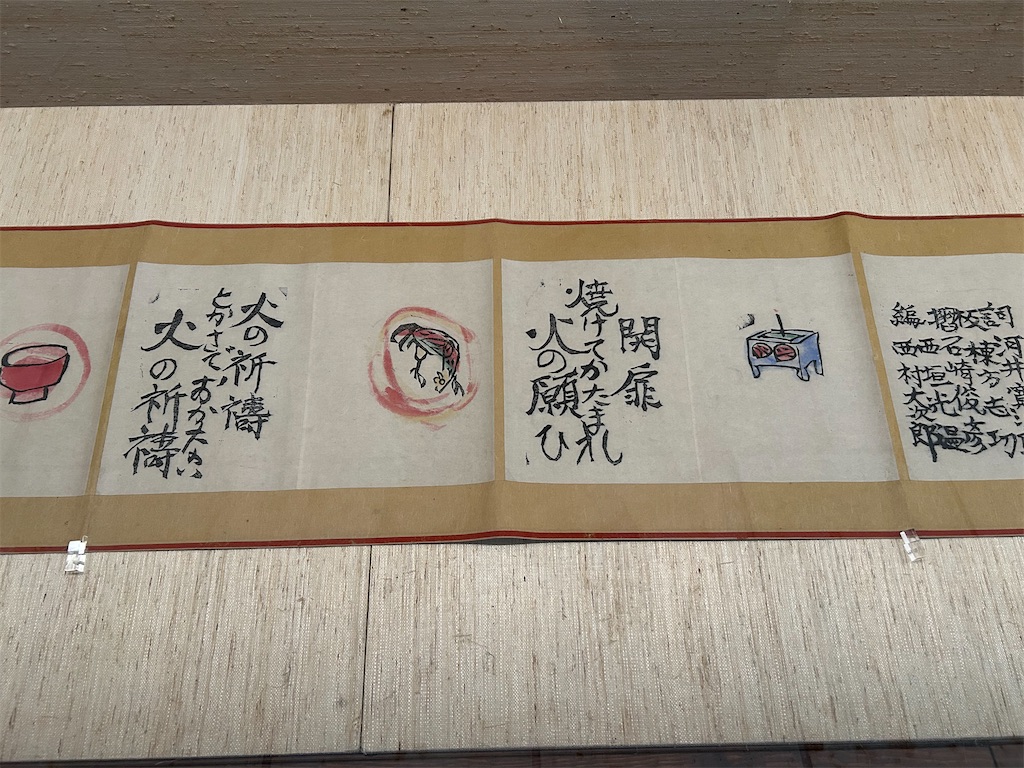 詞 河井寛次
板 棟方志功
摺 石崎俊彦
西垣光温
編 西村大次郎
開扉
焼けてかたまれ
火の願ひ
火の祈禱
とかさでおかない
火の祈禱